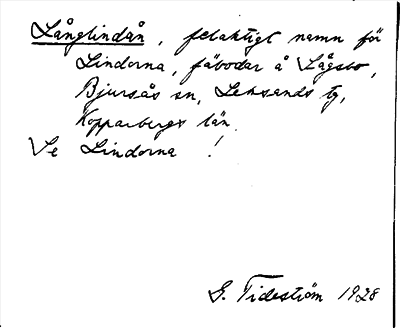 Långlindån, felaktigt namn för
Lindorna, fäbodar å Lågsbo,
Bjursås sn, Leksands tg,
Kopparbergs län.
Se Lindorna !
G. Tideström 1928